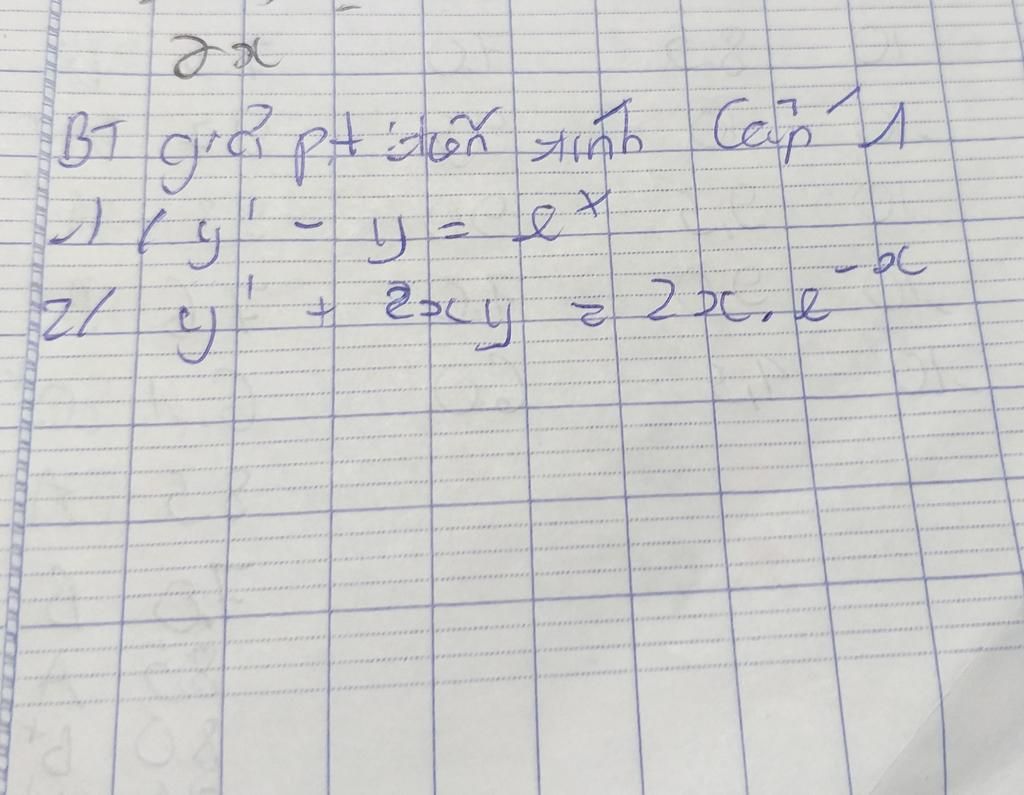 2x
BT giải pt tuyến tính Cấp 1
1/ y' - y = e^x
2/ y' + 2xy = 2x.e^-x